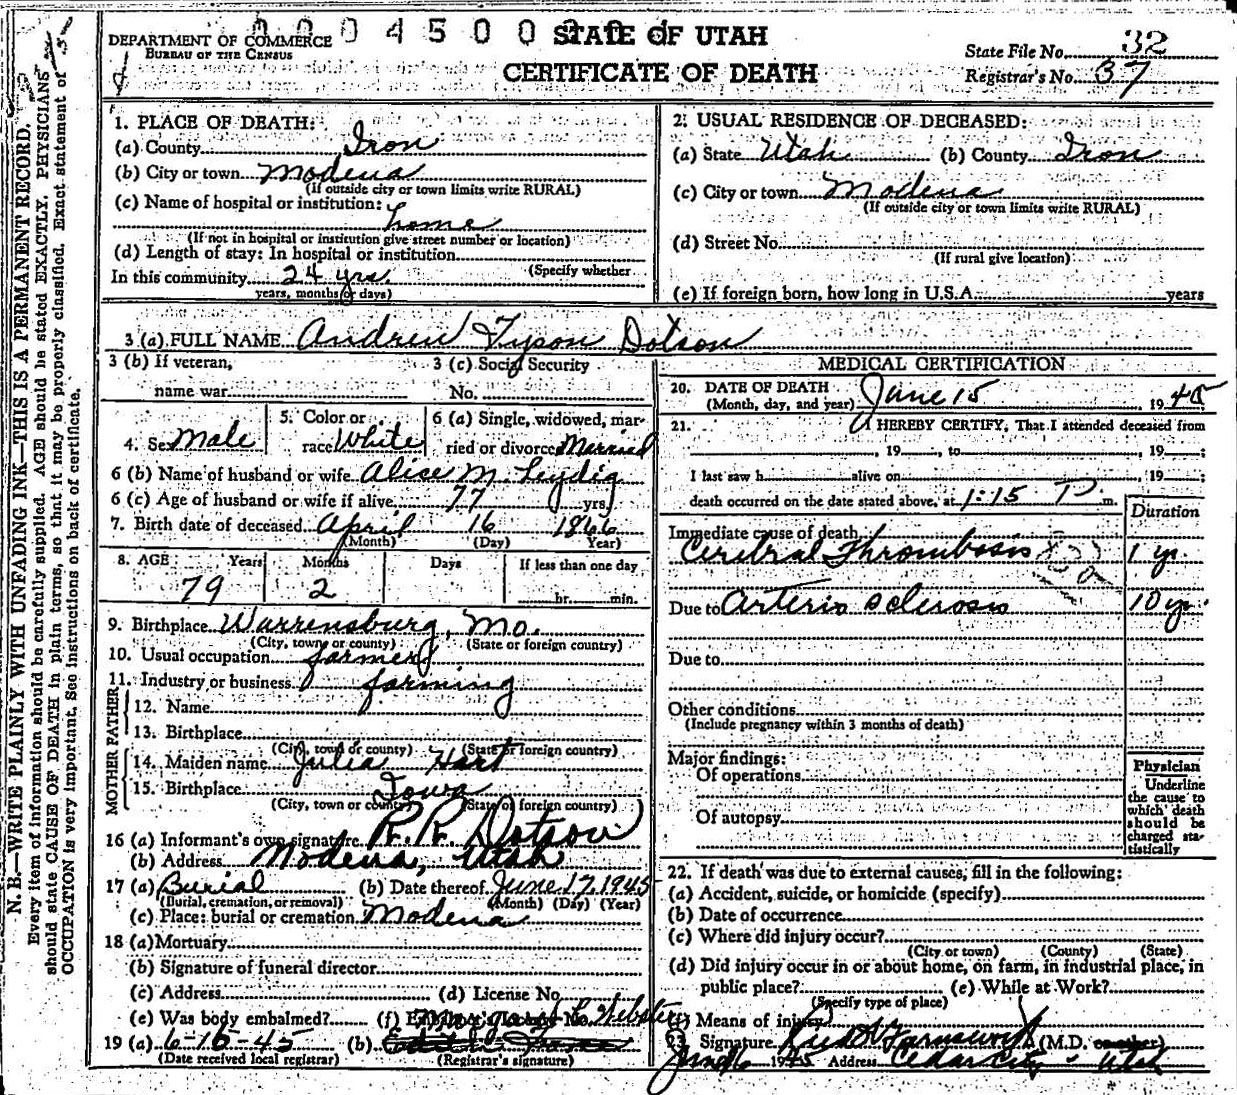 0 0 0 4 5 0 0
DEPARTMENT OF COMMERCE
BUREAU OF THE CENSUS
STATE OF UTAH
CERTIFICATE OF DEATH
State File No. 32
Registrar's No. 37
N. B.—WRITE PLAINLY WITH UNFADING INK—THIS IS A PERMANENT RECORD.
Every item of information should be carefully supplied. AGE should be stated EXACTLY. PHYSICIANS
should state CAUSE OF DEATH in plain terms, so that it may be properly classified. Exact statement of
OCCUPATION is very important. See instructions on back of certificate.
1. PLACE OF DEATH:
(a) County Iron
(b) City or town Modena
(If outside city or town limits write RURAL)
(c) Name of hospital or institution:
home
(If not in hospital or institution give street number or location)
(d) Length of stay: In hospital or institution
(Specify whether
In this community 24 yrs.
years, months or days)
2. USUAL RESIDENCE OF DECEASED:
(a) State Utah (b) County Iron
(c) City or town Modena
(If outside city or town limits write RURAL)
(d) Street No.
(If rural give location)
(e) If foreign born, how long in U.S.A. years
3 (a) FULL NAME Andrew Tyson Dotson
3 (b) If veteran, 3 (c) Social Security
name war No.
4. Sex Male 5. Color or race White 6 (a) Single, widowed, married or divorced Married
6 (b) Name of husband or wife Alice M. Leydig
6 (c) Age of husband or wife if alive 77 yrs.
7. Birth date of deceased April 16 1866
(Month) (Day) Year)
8. AGE Years Months Days If less than one day
79 2 hr. min.
9. Birthplace Warrensburg, Mo.
(City, town or county) (State or foreign country)
10. Usual occupation farmer
11. Industry or business farming
FATHER
12. Name
13. Birthplace
(City, town or county) (State or foreign country)
MOTHER
14. Maiden name Julia Hart
15. Birthplace Iowa
(City, town or county) (State or foreign country)
16 (a) Informant's own signature R. R. Dotson
(b) Address Modena, Utah
17 (a) Burial (b) Date thereof June 17, 1945
(Burial, cremation, or removal) (Month) (Day) (Year)
(c) Place: burial or cremation Modena
18 (a) Mortuary
(b) Signature of funeral director
(c) Address (d) License No.
(e) Was body embalmed? (f) Embalmer's License No.
Webster
19 (a) 6-16-45 (b)
(Date received local registrar) (Registrar's signature)
MEDICAL CERTIFICATION
20. DATE OF DEATH June 15 1945
(Month, day, and year)
21. I HEREBY CERTIFY, That I attended deceased from
, 19 , to , 19 ;
I last saw h alive on , 19 ;
death occurred on the date stated above, at 1:15 P. m.
Duration
Immediate cause of death
Cerebral Thrombosis 1 yr.
Due to Arterio sclerosis 10 yr.
Due to
Other conditions
(Include pregnancy within 3 months of death)
Major findings:
Of operations
Of autopsy
Physician
Underline
the cause to
which death
should be
charged sta-
tistically
22. If death was due to external causes, fill in the following:
(a) Accident, suicide, or homicide (specify)
(b) Date of occurrence
(c) Where did injury occur?
(City or town) (County) (State)
(d) Did injury occur in or about home, on farm, in industrial place, in
public place? (e) While at Work?
(Specify type of place)
(f) Means of injury
23. Signature Farnsworth (M.D. or other)
June 16 1945 Address Cedar City - Utah